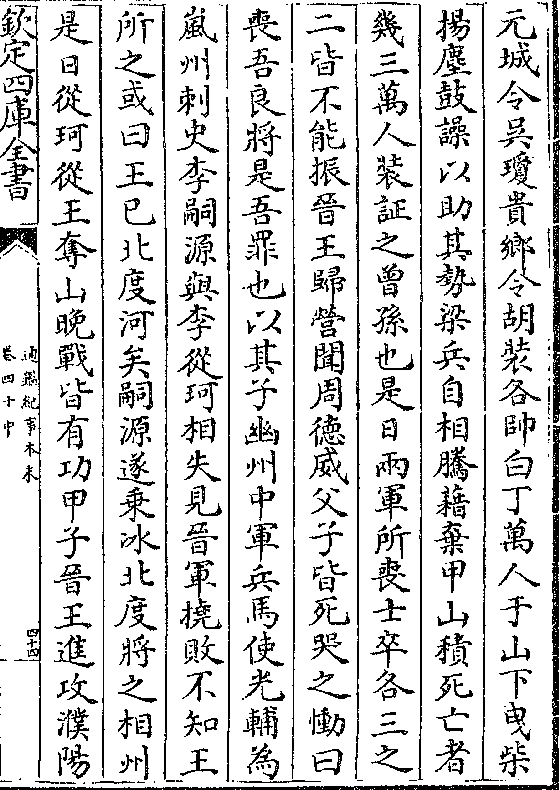 元城令吳瓊貴鄉令胡裝各帥白丁萬人于山下曳柴
揚塵鼓譟以助其勢梁兵自相騰藉棄甲山積死亡者
幾三萬人裝証之曾孫也是日兩軍所喪士卒各三之
二皆不能振晉王歸營聞周德威父子皆死哭之慟曰
喪吾良將是吾罪也以其子幽州中軍兵馬使光輔為
嵐州刺史李嗣源與李從珂相失見晉軍橈敗不知王
所之或曰王已北度河矣嗣源遂乗冰北度將之相州
是日從珂從王奪山晚戰皆有功甲子晉王進攻濮陽
欽定四庫全書
通鑑紀事本末
卷四十中
四十四